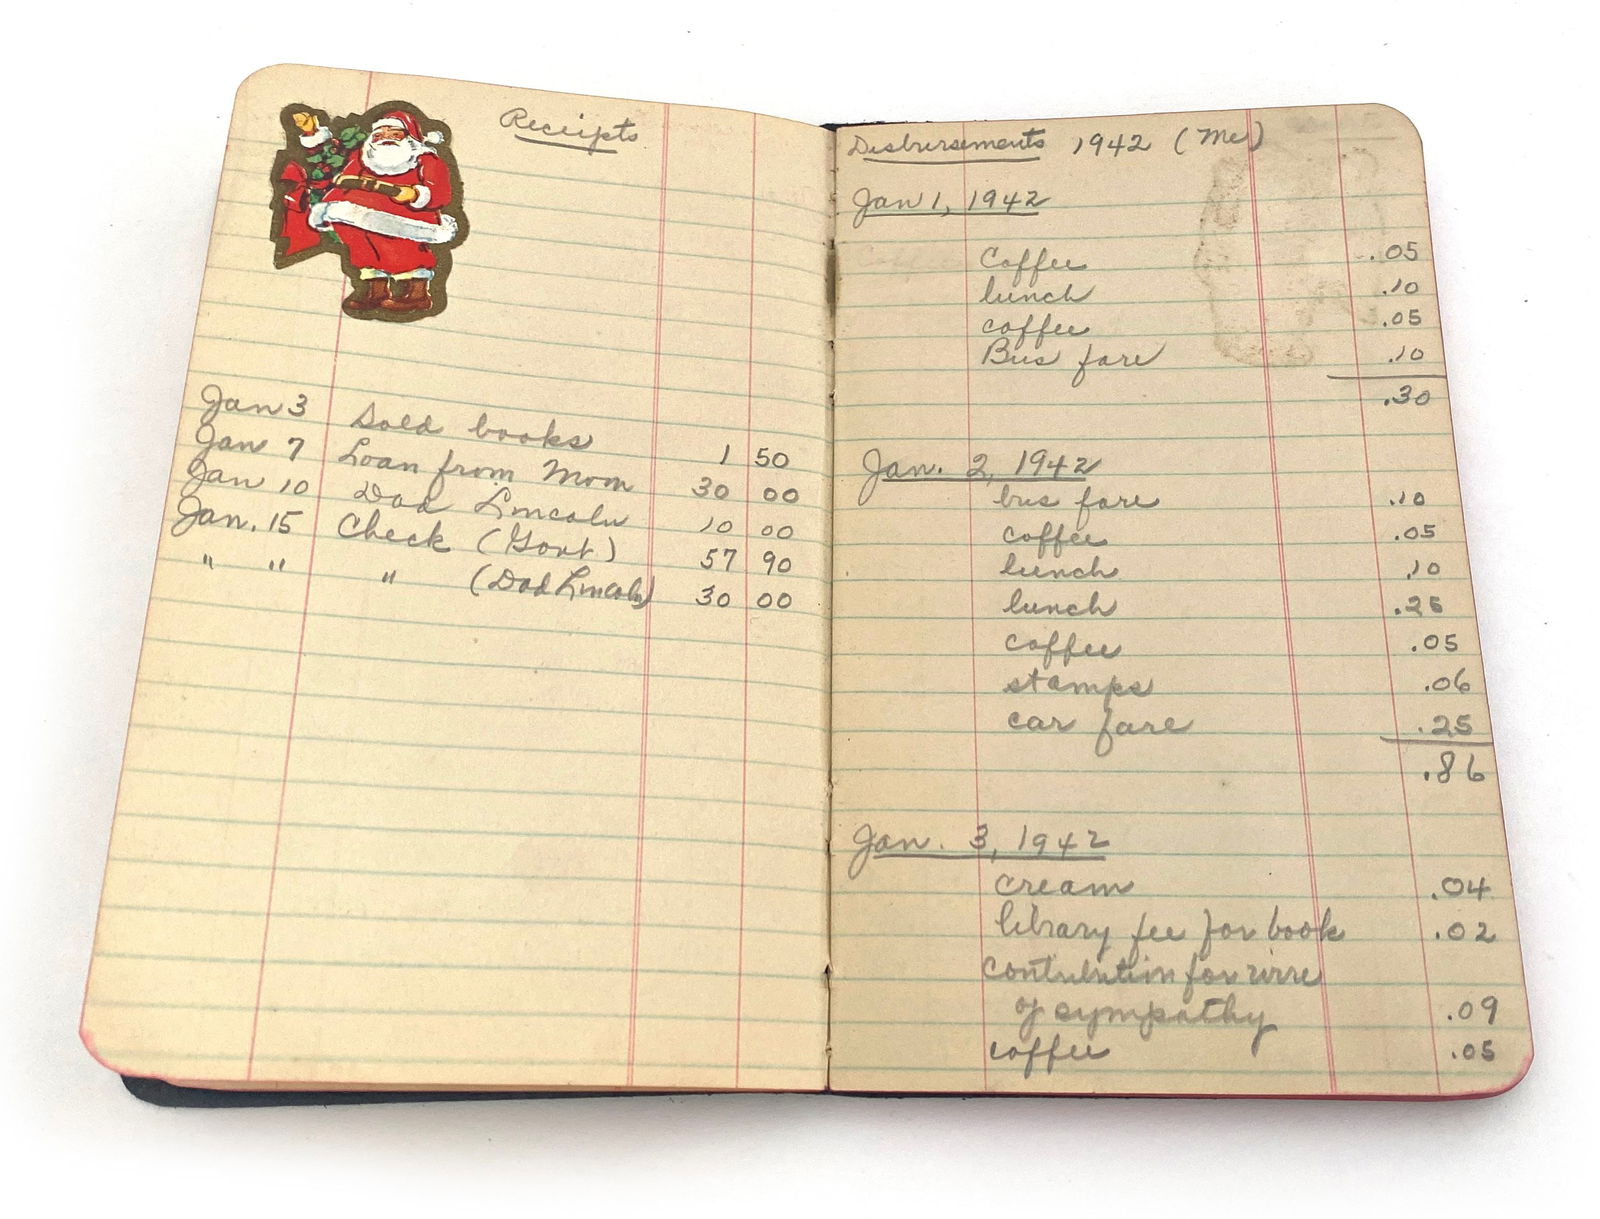 Receipts
Jan 3 Sold books 1 50
Jan 7 Loan from Mom 30 00
Jan 10 Dad Lincoln 10 00
Jan. 15 Check (Govt) 57 90
" " " (Dad Lincoln) 30 00
Disbursements 1942 (Me)
Jan 1, 1942
Coffee .05
lunch .10
coffee .05
Bus fare .10
.30
Jan. 2, 1942
bus fare .10
coffee .05
lunch .10
lunch .25
coffee .05
stamps .06
car fare .25
.86
Jan. 3, 1942
cream .04
library fee for book .02
contribution for wire
of sympathy .09
coffee .05